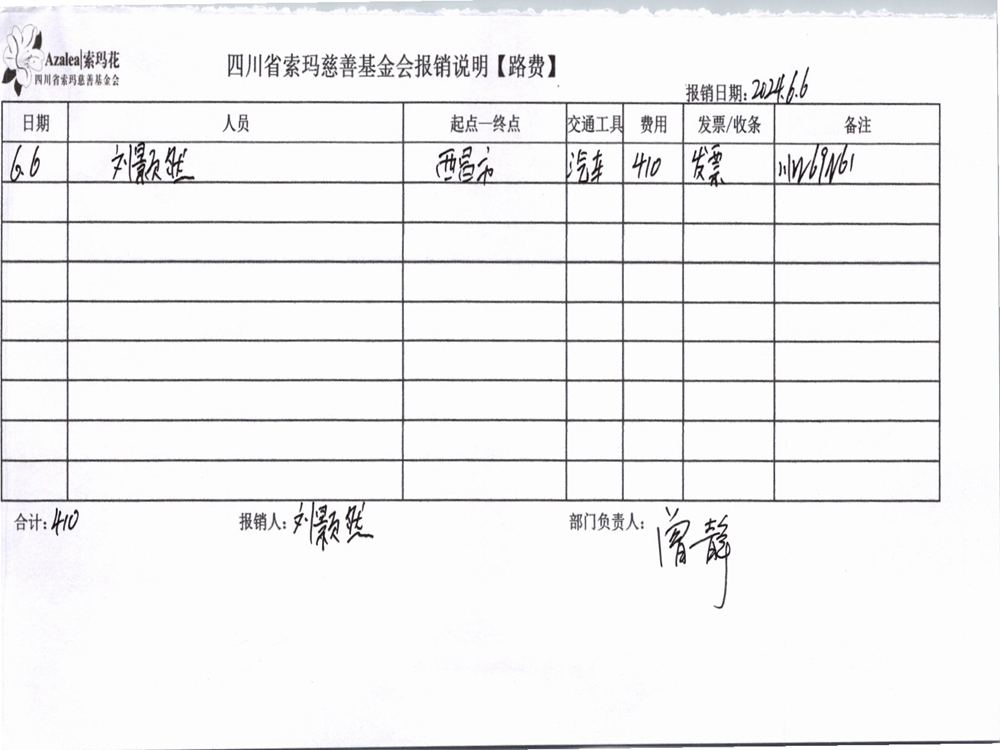 Azalea|索玛花
四川省索玛慈善基金会
四川省索玛慈善基金会报销说明【路费】
报销日期:2024.6.6
日期 人员 起点—终点 交通工具 费用 发票/收条 备注
6.6 刘颢然 西昌市 汽车 410 发票
合计:410 报销人:刘颢然 部门负责人:曾静